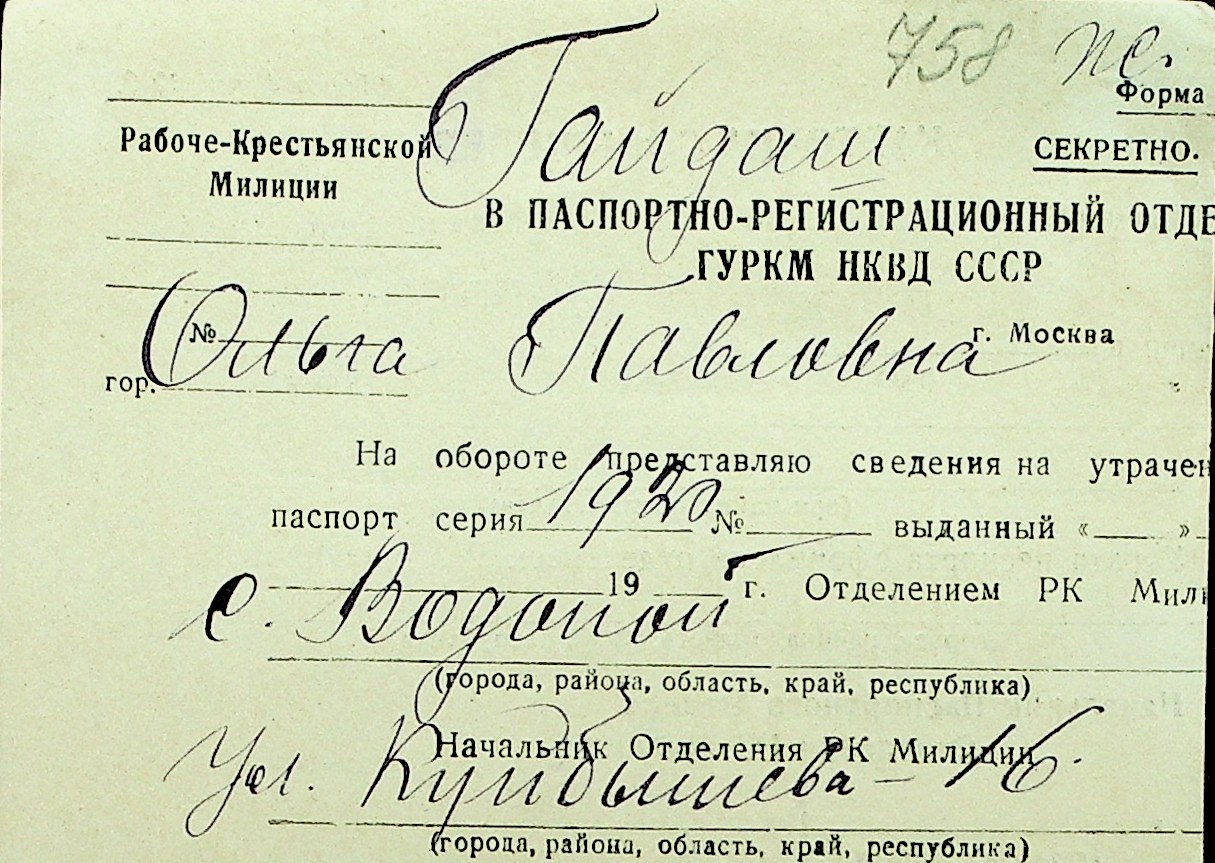 758 пс.
Форма
Гайдаш
Рабоче-Крестьянской
Милиции
СЕКРЕТНО.
В ПАСПОРТНО-РЕГИСТРАЦИОННЫЙ ОТДЕ
ГУРКМ НКВД СССР
№ Ольга Павловна
г. Москва
гор.
На обороте представляю сведения на утрачен
1920
паспорт серия № выданный « »
19 г. Отделением РК Мили
с. Водопой
(города, района, область, край, республика)
Начальник Отделения РК Милиции
Ул. Куйбышева - 16.
(города, района, область, край, республика)